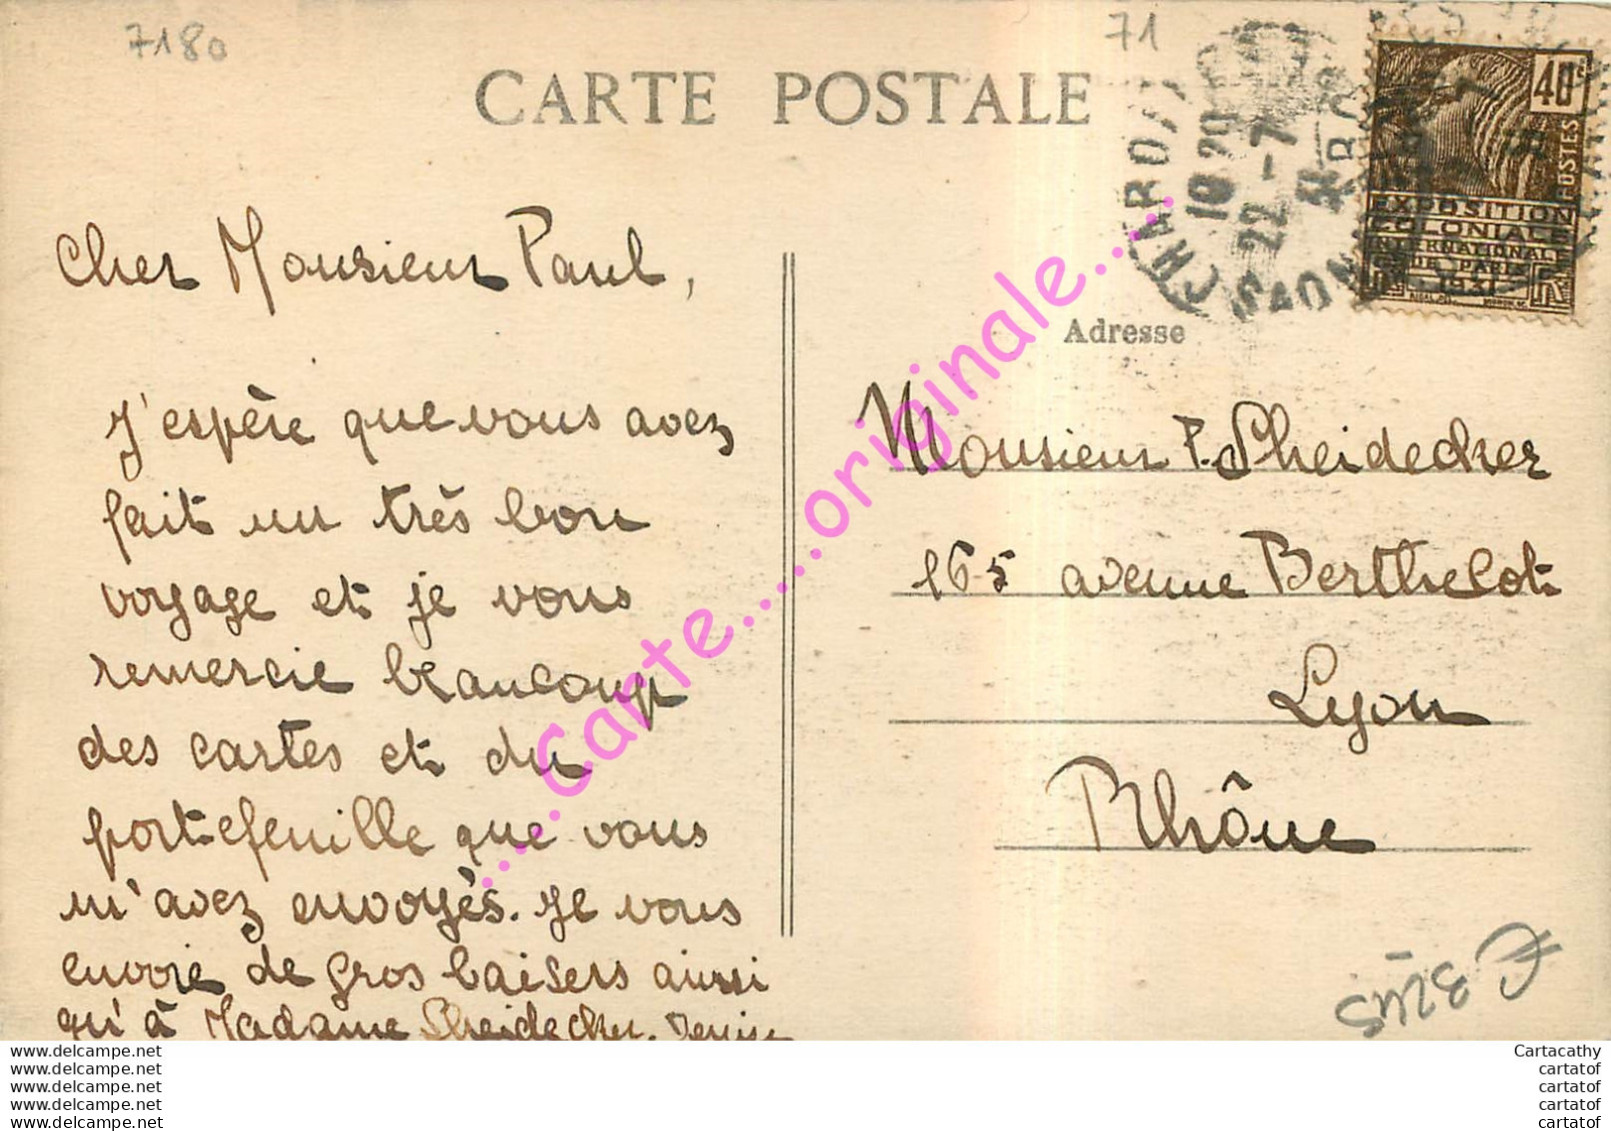 7180
71
CARTE POSTALE
CHARO
10 20
22 -7
31
40c
POSTES
EXPOSITION
COLONIALE
INTERNATIONALE
DE PARIS
1931
Cher Monsieur Paul,
J'espère que vous avez
fait un très bon
voyage et je vous
remercie beaucoup
des cartes et du
portefeuille que vous
m'avez envoyés. Je vous
envoie de gros baisers aussi
qu'à Madame Sheidecker. Denise
Adresse
Monsieur P. Sheidecker
165 avenue Berthelot
Lyon
Rhône
.....Carte.....originale.....
www.delcampe.net
www.delcampe.net
www.delcampe.net
www.delcampe.net
www.delcampe.net
Cartacathy
cartatof
cartatof
cartatof
cartatof